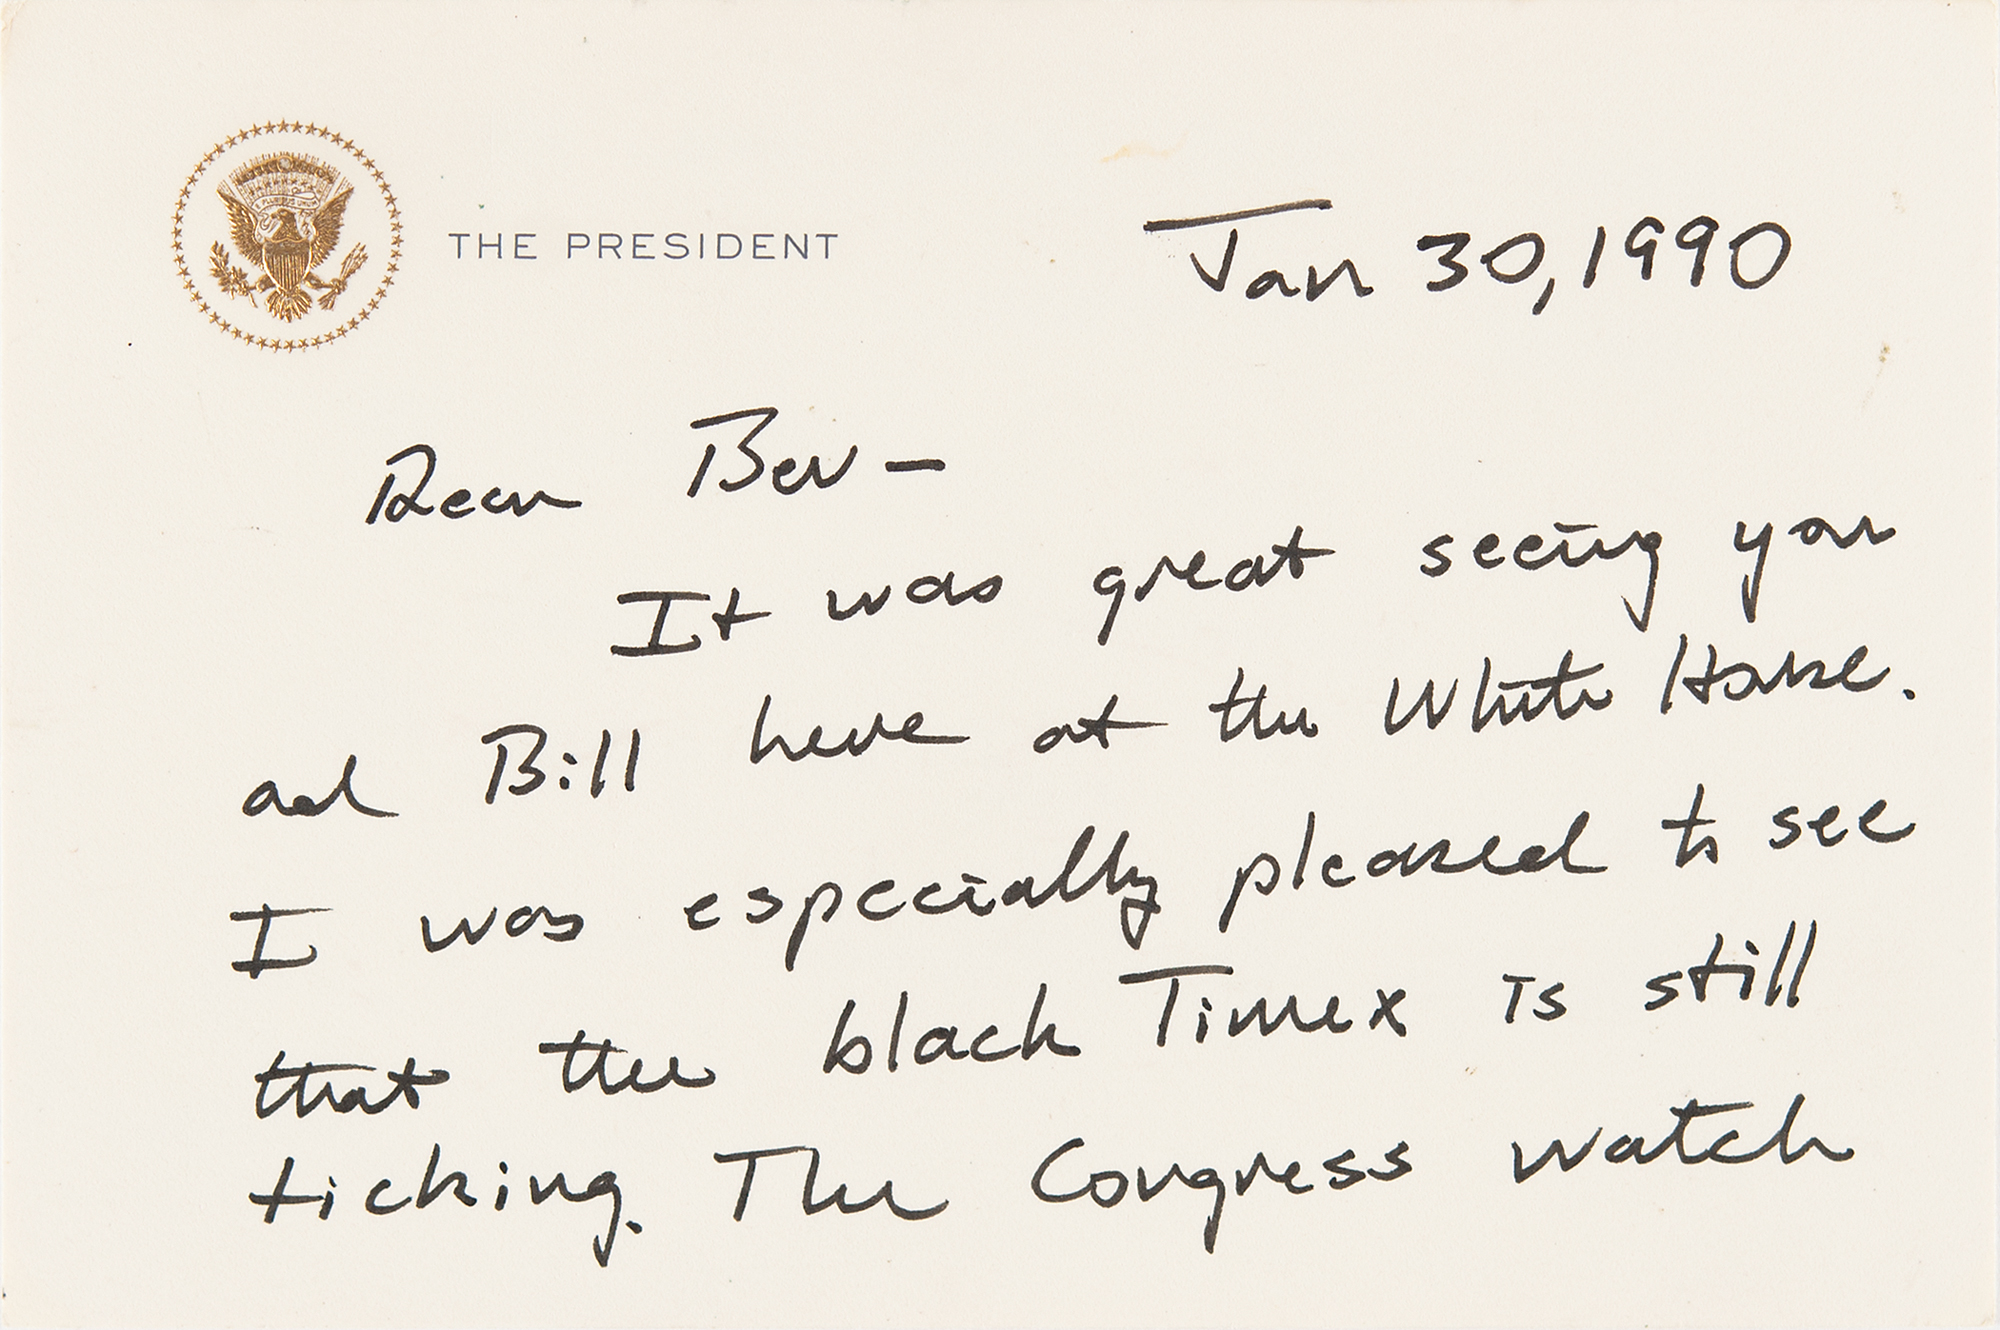 E PLURIBUS UNUM
THE PRESIDENT
Jan 30, 1990
Dear Bev—
It was great seeing you
and Bill here at the White House.
I was especially pleased to see
that the black Timex is still
ticking. The Congress watch